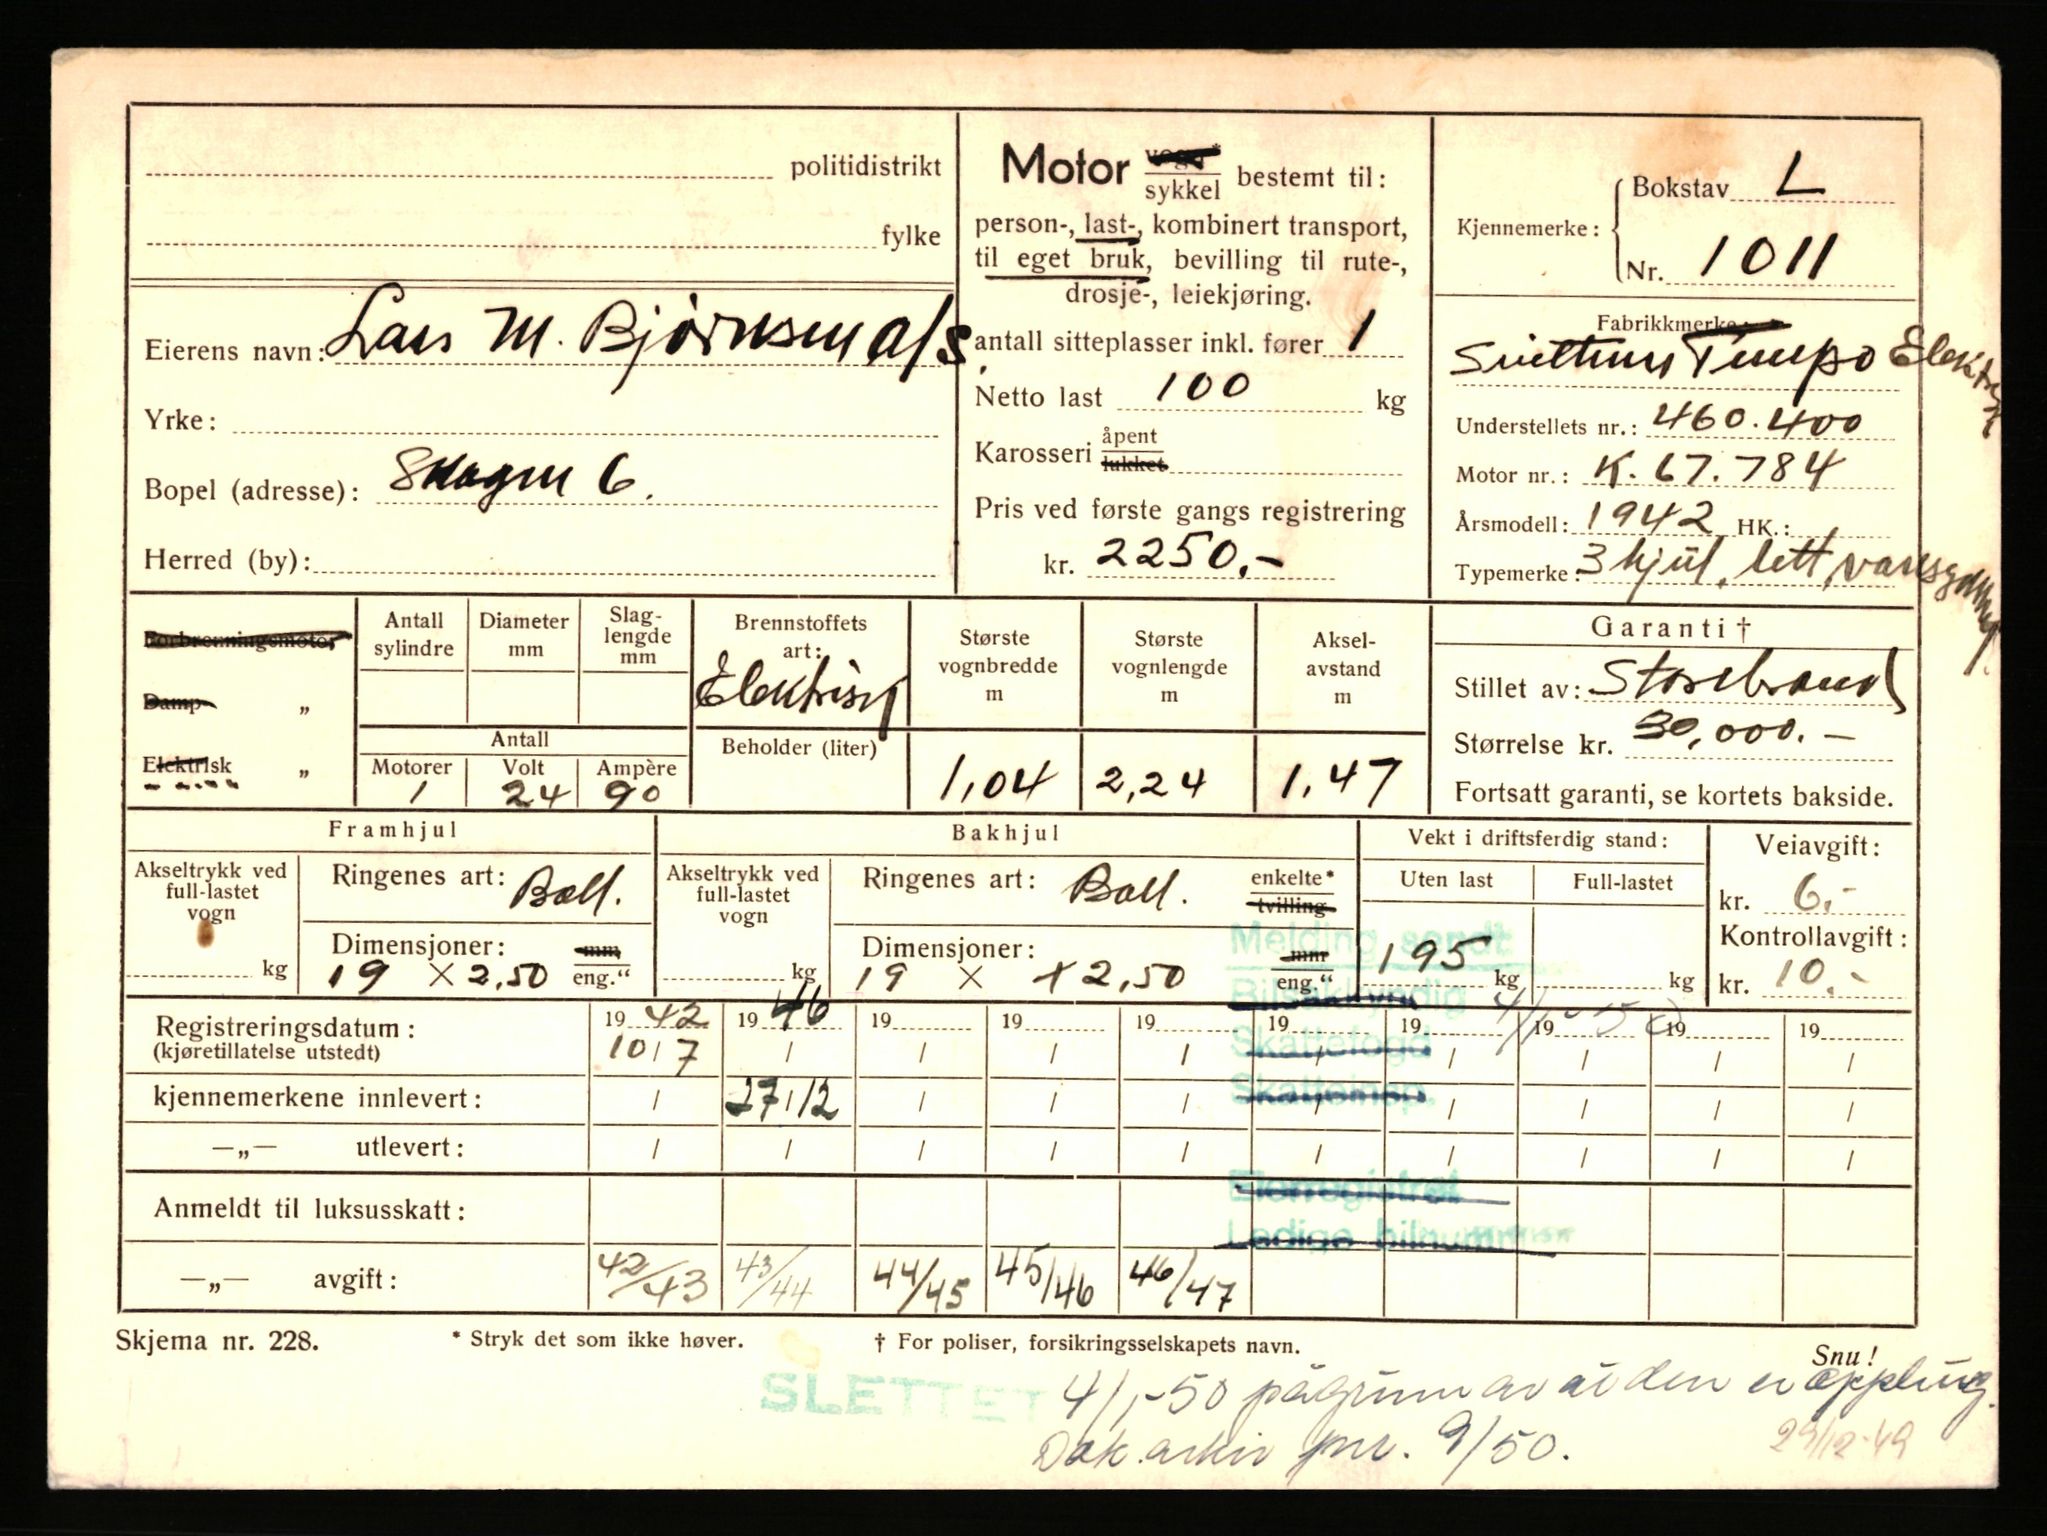 politidistrikt
fylke
Eierens navn: Lars M. Bjørnsen a/s.
Yrke:
Bopel (adresse): Skagen 6.
Herred (by):
Motor vogn* sykkel bestemt til:
person-, last-, kombinert transport,
til eget bruk, bevilling til rute-,
drosje-, leiekjøring.
antall sitteplasser inkl. fører 1
Netto last 100 kg
Karosseri åpent lukket
Pris ved første gangs registrering
kr. 2250.-
Kjennemerke: Bokstav L
Nr. 1011
Fabrikkmerke:
Tempo Elektrisk
Understellets nr.: 460.400
Motor nr.: K.67.784
Årsmodell: 1942 HK.:
Typemerke: 3 hjul, lett
Forbrenningsmotor
Damp „
Elektrisk „
Antall sylindre
Diameter mm
Slaglengde mm
Antall
Motorer 1
Volt 24
Ampère 90
Brennstoffets art:
Elektrisk
Beholder (liter)
Største vognbredde m
1,04
Største vognlengde m
2,24
Akselavstand m
1,47
Garanti †
Stillet av: Storebrand
Størrelse kr. 30,000.-
Fortsatt garanti, se kortets bakside.
Framhjul
Akseltrykk ved full-lastet vogn
kg
Ringenes art: Ball.
Dimensjoner: mm
19 x 2,50 eng."
Bakhjul
Akseltrykk ved full-lastet vogn
kg
Ringenes art: Ball. enkelte* tvilling
Dimensjoner: mm
19 x x 2,50 eng."
Vekt i driftsferdig stand:
Uten last
195 kg
Full-lastet
kg
Veiavgift:
kr. 6.-
Kontrollavgift:
kr. 10.-
Melding sendt
Bilsakkyndig 4/1-50
Skattefogd
Skatteinsp.
Eierregistret
Ledige bilnummer
Registreringsdatum: 19 42 19 46 19 19 19 19 19 19 19 19
(kjøretillatelse utstedt) 10/7 / / / / / / / / /
kjennemerkene innlevert: / 27/12 / / / / / / / /
—„— utlevert: / / / / / / / / / /
Anmeldt til luksusskatt:
—„— avgift: 42/43 43/44 44/45 45/46 46/47
Skjema nr. 228.
* Stryk det som ikke høver.
† For poliser, forsikringsselskapets navn.
Snu!
SLETTET 4/1-50 pågrunn av at den er opphug.
Dok. arkiv jnr. 9/50.
29/12-49